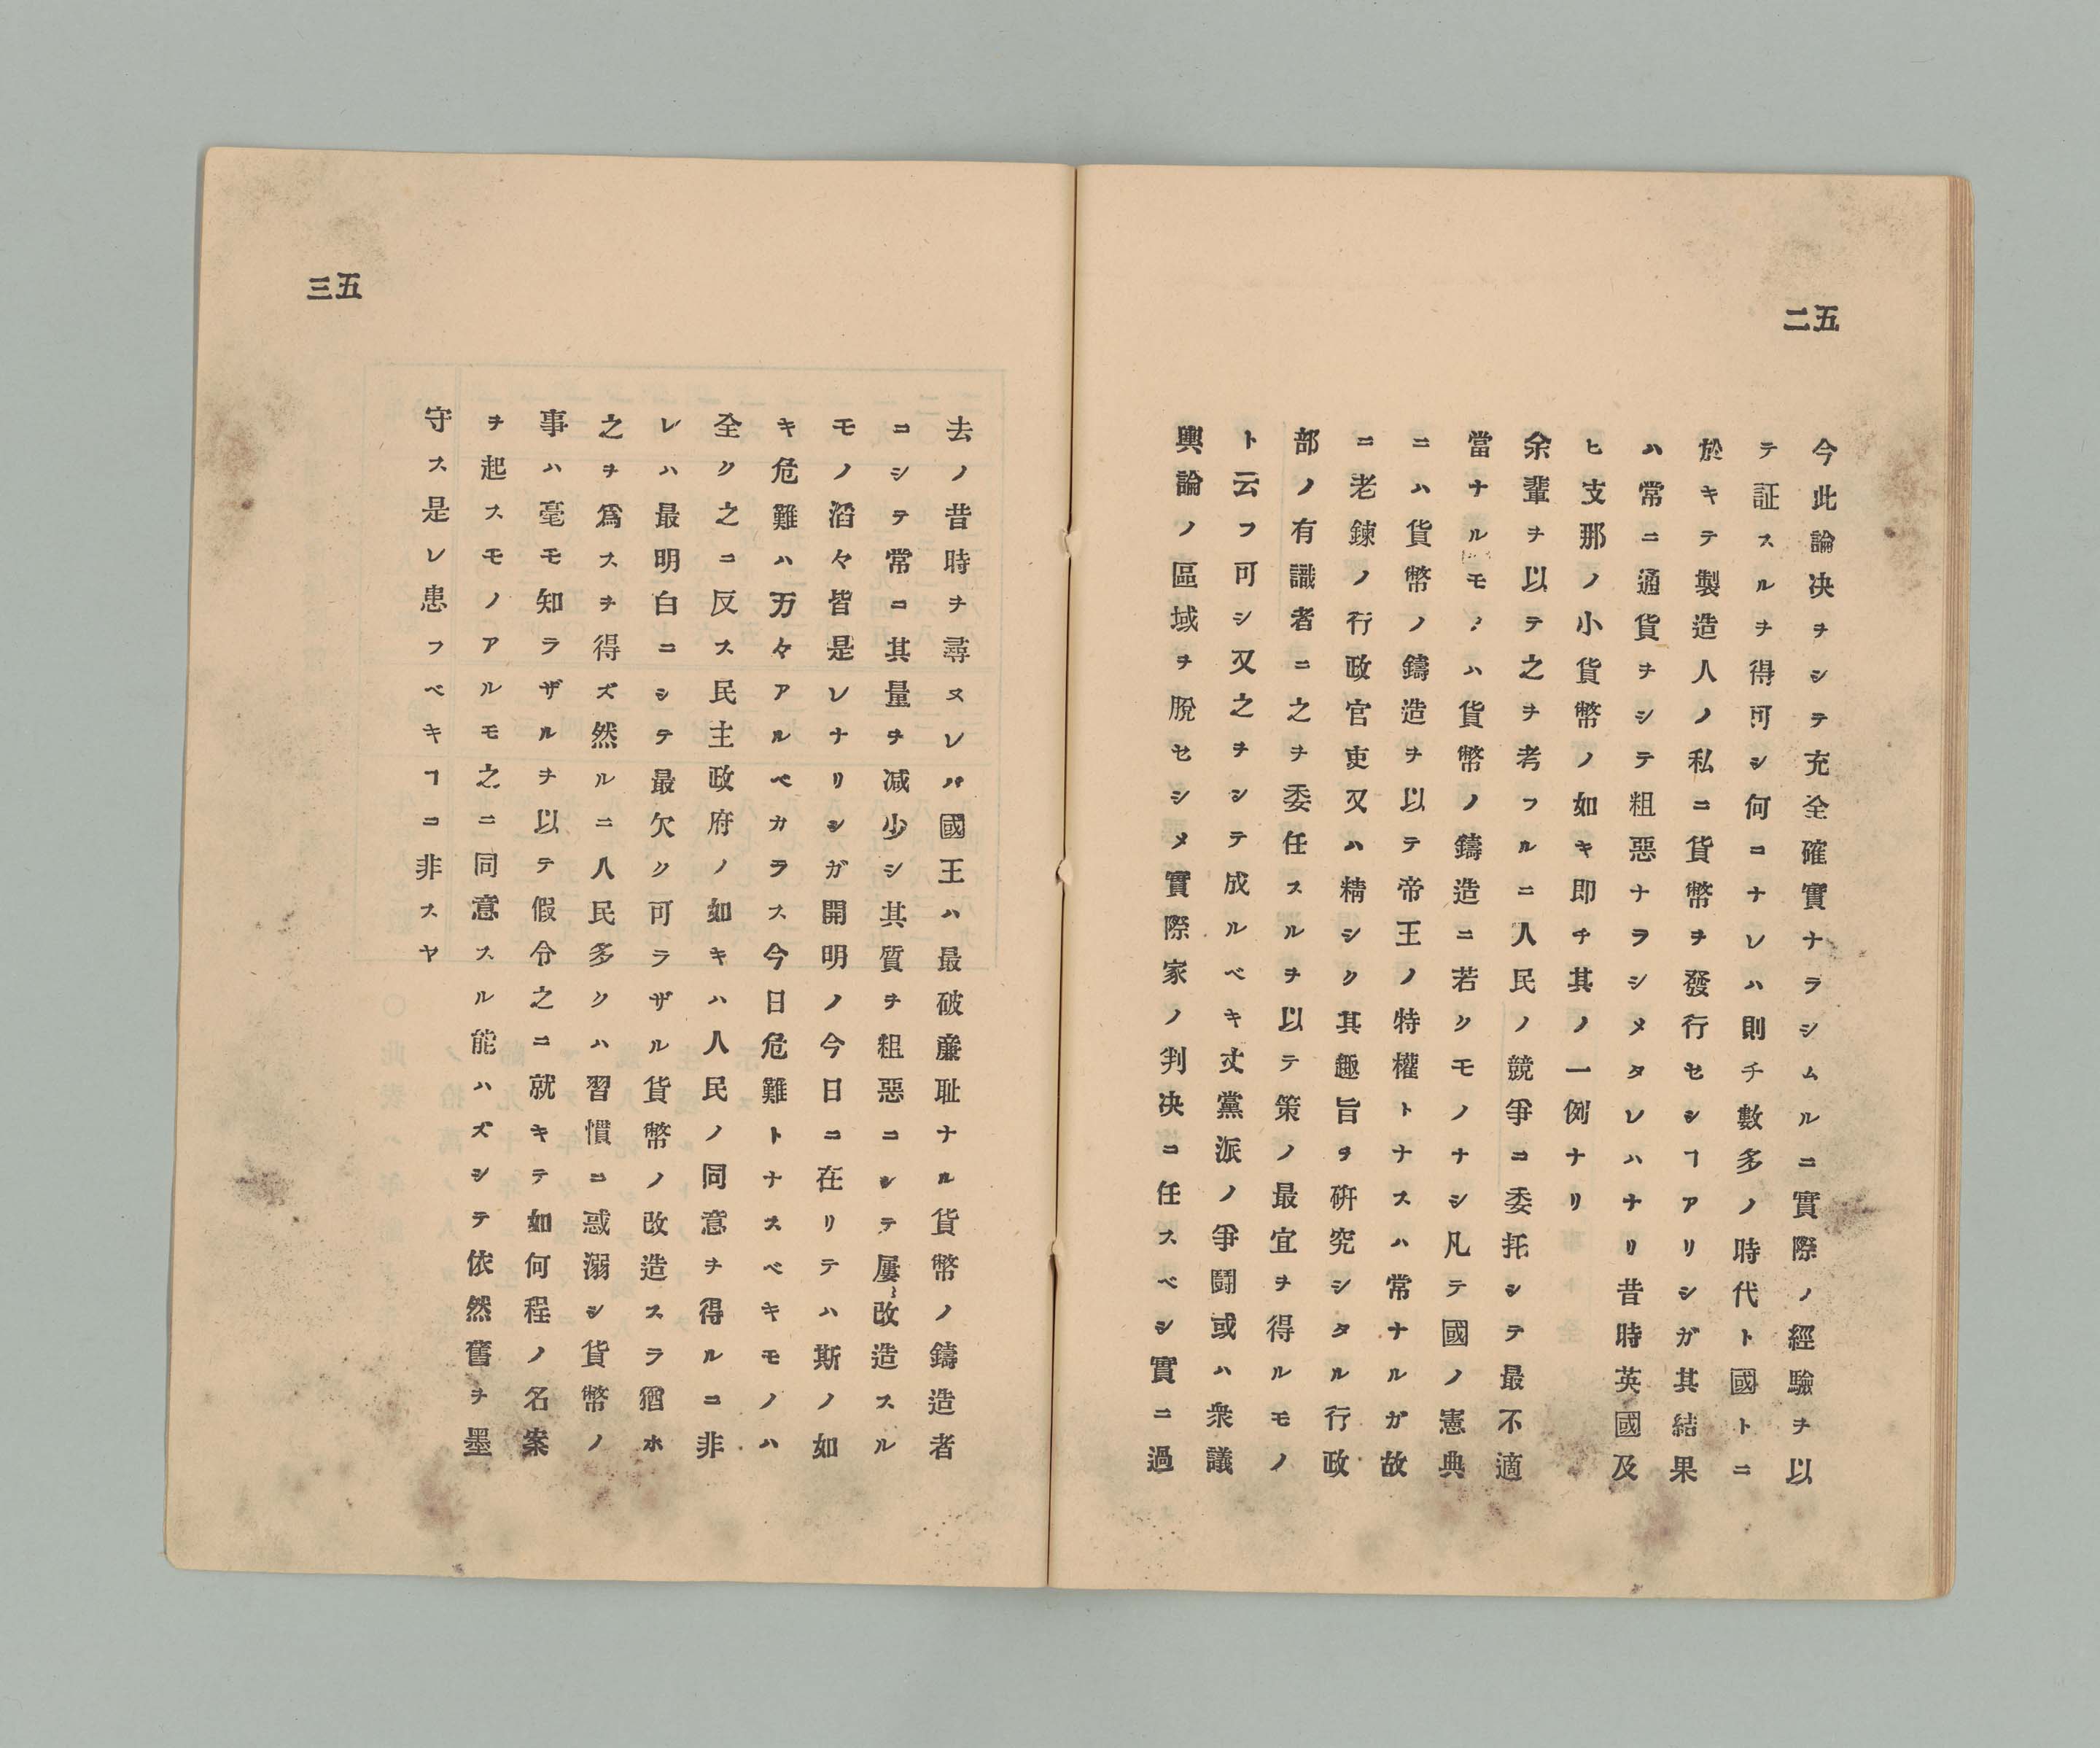 五二
今此論决ヲシテ充全確實ナラシムルニ實際ノ經驗ヲ以
テ証スルヲ得可シ何コナレハ則チ數多ノ時代ト國トニ
於キテ製造人ノ私ニ貨幣ヲ發行セシヿアリシガ其結果
ハ常ニ通貨ヲシテ粗惡ナラシメタレハナリ昔時英國及
ヒ支那ノ小貨幣ノ如キ即チ其ノ一例ナリ
余輩ヲ以テ之ヲ考フルニ人民ノ競爭コ委托シテ最不適
當ナルモノハ貨幣ノ鑄造ニ若クモノナシ凡テ國ノ憲典
ニハ貨幣ノ鑄造ヲ以テ帝王ノ特權トナスハ常ナルガ故
ニ老鍊ノ行政官吏又ハ精シク其趣旨ヲ硏究シタル行政
部ノ有識者ニ之ヲ委任スルヲ以テ策ノ最宜ヲ得ルモノ
ト云フ可シ又之ヲシテ成ルベキ丈黨派ノ爭鬪或ハ衆議
輿論ノ區域ヲ脫セシメ實際家ノ判决コ任スベシ實ニ過
五三
去ノ昔時ヲ尋ヌレバ國王ハ最破廉耻ナル貨幣ノ鑄造者
コシテ常コ其量ヲ减少シ其質ヲ粗惡コシテ屢〻改造スル
モノ滔々皆是レナリシガ開明ノ今日コ在リテハ斯ノ如
キ危難ハ万々アルベカラス今日危難トナスベキモノハ
全ク之コ反ス民主政府ノ如キハ人民ノ同意ヲ得ルコ非
レハ最明白コシテ最欠ク可ラザル貨幣ノ改造スラ猶ホ
之ヲ爲スヲ得ズ然ルニ人民多クハ習慣コ惑溺シ貨幣ノ
事ハ毫モ知ラザルヲ以テ假令之ニ就キテ如何程ノ名案
ヲ起スモノアルモ之ニ同意スル能ハズシテ依然舊ヲ墨
守ス是レ患フベキヿコ非スヤ